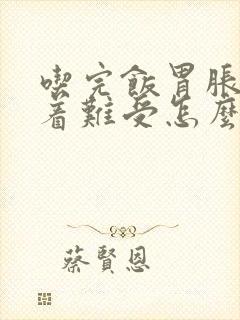 喫完飯胃脹
着難受怎麼
蔡賢恩